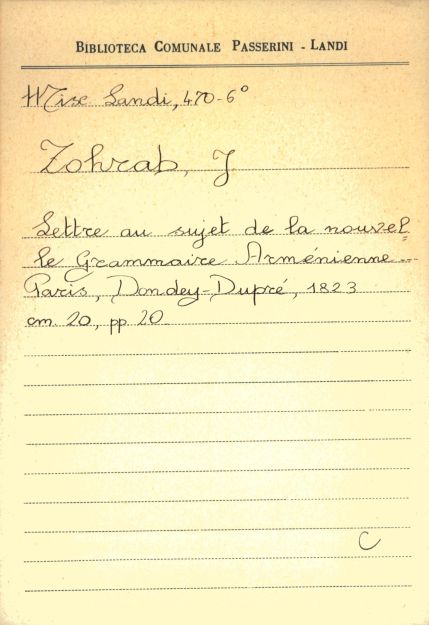 BIBLIOTECA COMUNALE PASSERINI - LANDI
Misc Landi, 470-6°
Zohrab, J
Lettre au sujet de la nouvel=
le Grammaire Arménienne...
Paris, Dondey-Dupré, 1823
cm. 20, pp. 20
C